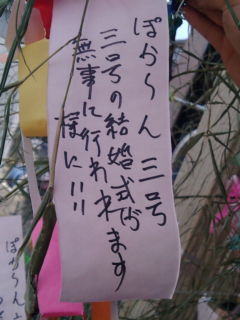 ぽからん三号
三号の結婚式が
無事に行われます
様に!!
ぽからん